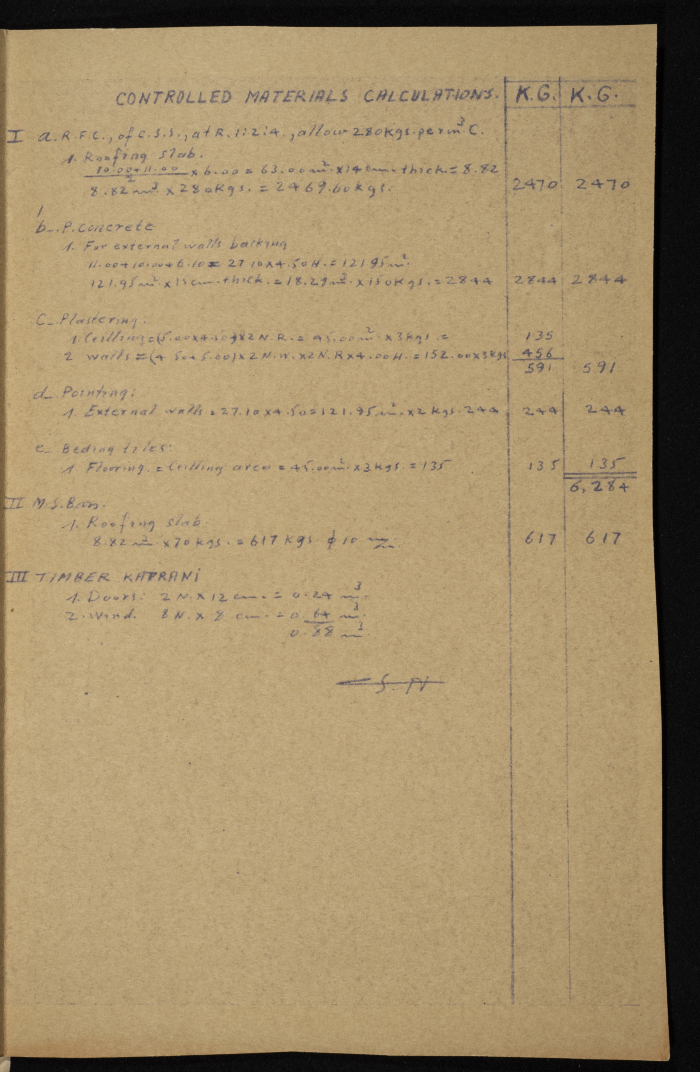 CONTROLLED MATERIALS CALCULATIONS. K.G. K.G.
I a. R.F.C., of C.S.S., at R. 1:2:4., allow 280 kgs. per m³ C.
1. Roofing slab.
10.00+11.00 / 2 x 6.00 = 63.00 m² x 14 cm. thick = 8.82
8.82 m³ x 280 kgs. = 2469.60 kgs. 2470 2470
b_. P. Concrete
1. For external walls backing
11.00+10.00+6.10 = 27.10 x 4.50 H. = 121.95 m².
121.95 m² x 15 cm. thick. = 18.29 m³ x 150 kgs. = 2844 2844 2844
C_ Plastering:
1. Ceilling = (5.00 x 4.50) x 2 N.R. = 45.00 m² x 3 kgs = 135
2 walls = (4.50+5.00) x 2 N.W. x 2 N.R x 4.00 H. = 152.00 x 3 kgs 456
591 591
d_ Pointing:
1. External walls = 27.10 x 4.50 = 121.95 m² x 2 kgs. 244 244 244
e_ Beding tiles:
1. Flooring. = Ceilling area = 45.00 m² x 3 kgs. = 135 135 135
6,284
II M.S. Bars.
1. Roofing slab.
8.82 m³ x 70 kgs. = 617 kgs ϕ 10 m/m. 617 617
III TIMBER KATRANI
1. Doors: 2 N. x 12 cm. = 0.24 m³.
2. Wind. 8 N. x 8 cm. = 0.64 m³.
0.88 m³